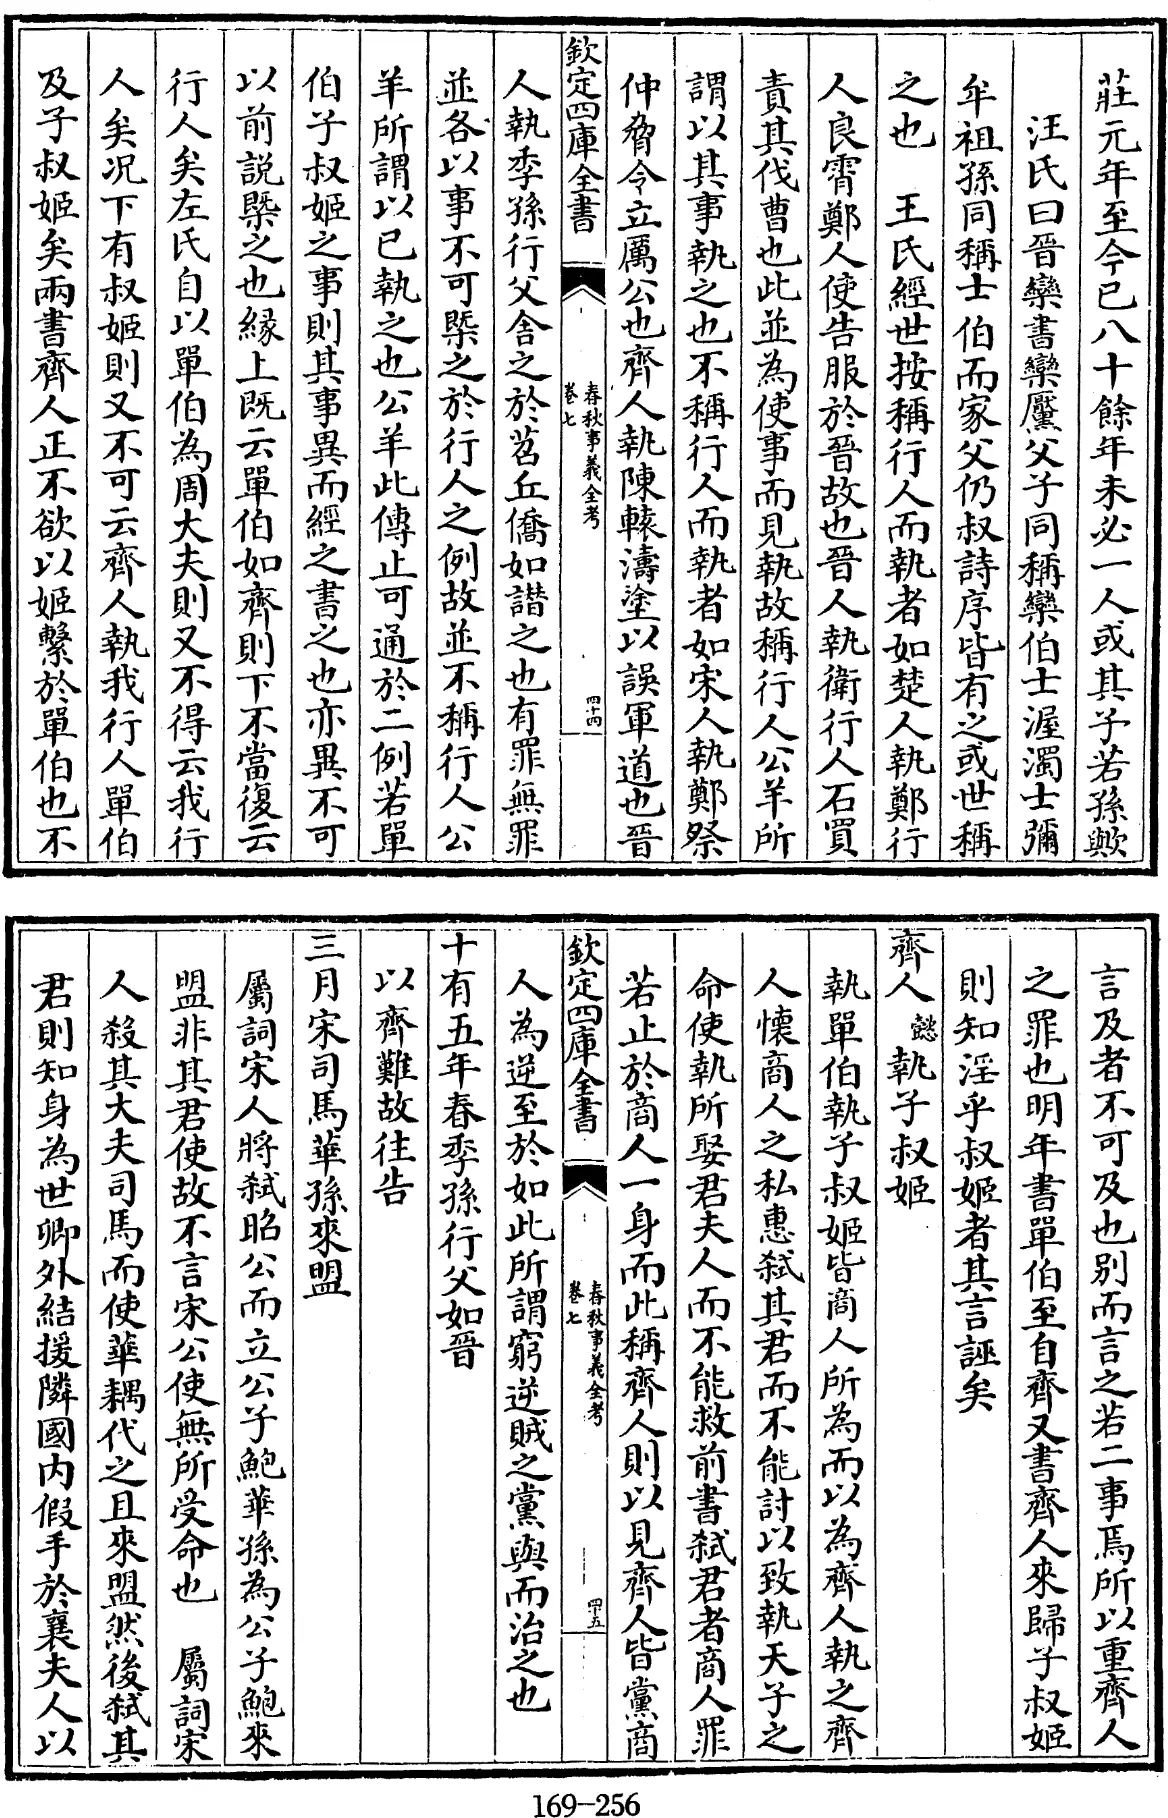 莊元年至今已八十餘年未必一人或其子若孫歟
汪氏曰晉欒書欒黶父子同稱欒伯士渥濁士彌
牟祖孫同稱士伯而家父仍叔詩序皆有之或世稱
之也　王氏經世按稱行人而執者如楚人執鄭行
人良霄鄭人使告服於晉故也晉人執衛行人石買
責其伐曹也此並為使事而見執故稱行人公羊所
謂以其事執之也不稱行人而執者如宋人執鄭祭
仲脅令立厲公也齊人執陳轅濤塗以誤軍道也晉
欽定四庫全書
春秋事義全考
卷七
四十四
人執季孫行父舍之於苕丘僑如譖之也有罪無罪
並各以事不可槩之於行人之例故並不稱行人公
羊所謂以已執之也公羊此傳止可通於二例若單
伯子叔姬之事則其事異而經之書之也亦異不可
以前説槩之也緣上既云單伯如齊則下不當復云
行人矣左氏自以單伯為周大夫則又不得云我行
人矣况下有叔姬則又不可云齊人執我行人單伯
及子叔姬矣兩書齊人正不欲以姬繫於單伯也不
言及者不可及也別而言之若二事焉所以重齊人
之罪也明年書單伯至自齊又書齊人來歸子叔姬
則知淫乎叔姬者其言誣矣
齊人懿執子叔姬
執單伯執子叔姬皆商人所為而以為齊人執之齊
人懷商人之私惠弑其君而不能討以致執天子之
命使執所娶君夫人而不能救前書弑君者商人罪
若止於商人一身而此稱齊人則以見齊人皆黨商
欽定四庫全書
春秋事義全考
卷七
四十五
人為逆至於如此所謂窮逆賊之黨與而治之也
十有五年春季孫行父如晉
以齊難故往告
三月宋司馬華孫來盟
屬詞宋人將弑昭公而立公子鮑華孫為公子鮑來
盟非其君使故不言宋公使無所受命也　屬詞宋
人殺其大夫司馬而使華耦代之且來盟然後弑其
君則知身為世卿外結援隣國内假手於襄夫人以
169-256